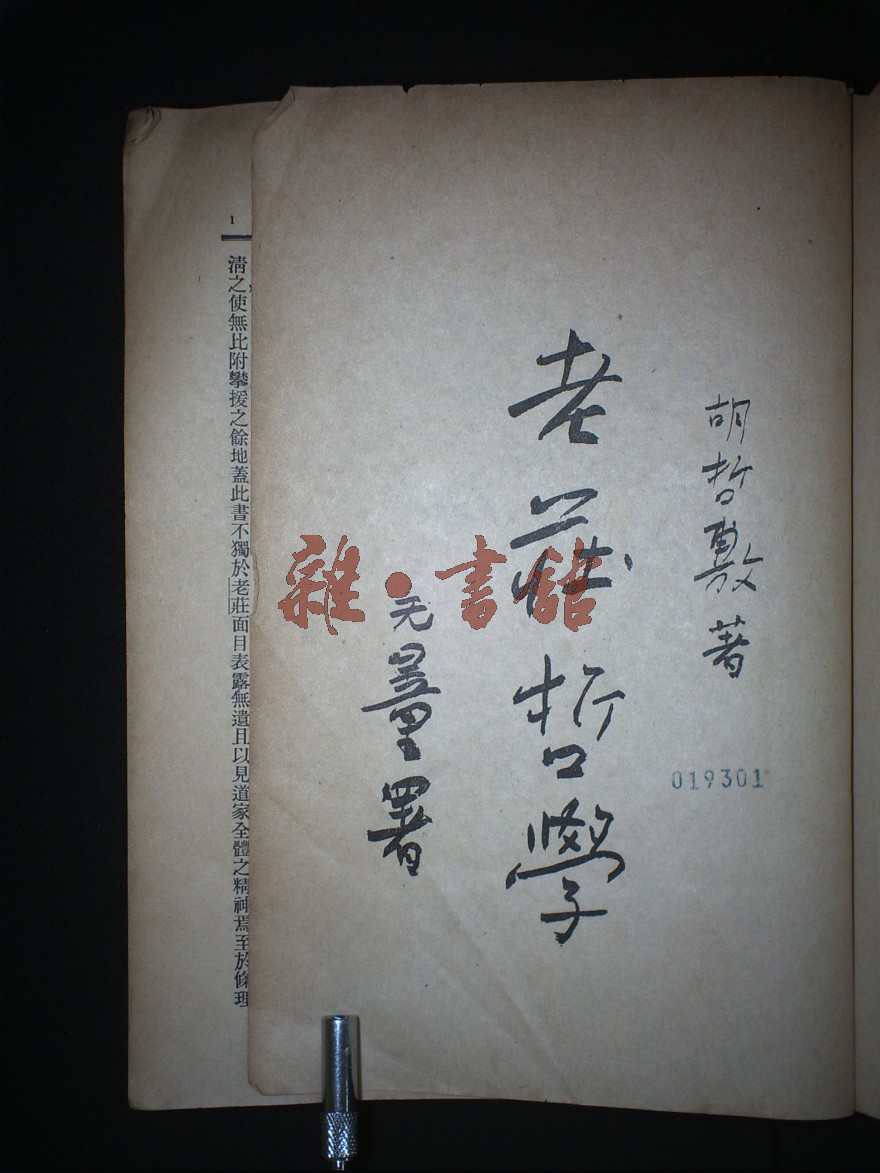 胡哲敷著
老莊哲學
无量署
019301
雜·書館
1
淸之使無比附攀援之餘地蓋此書不獨於老莊面目表露無遺且以見道家全體之精神焉至於條理